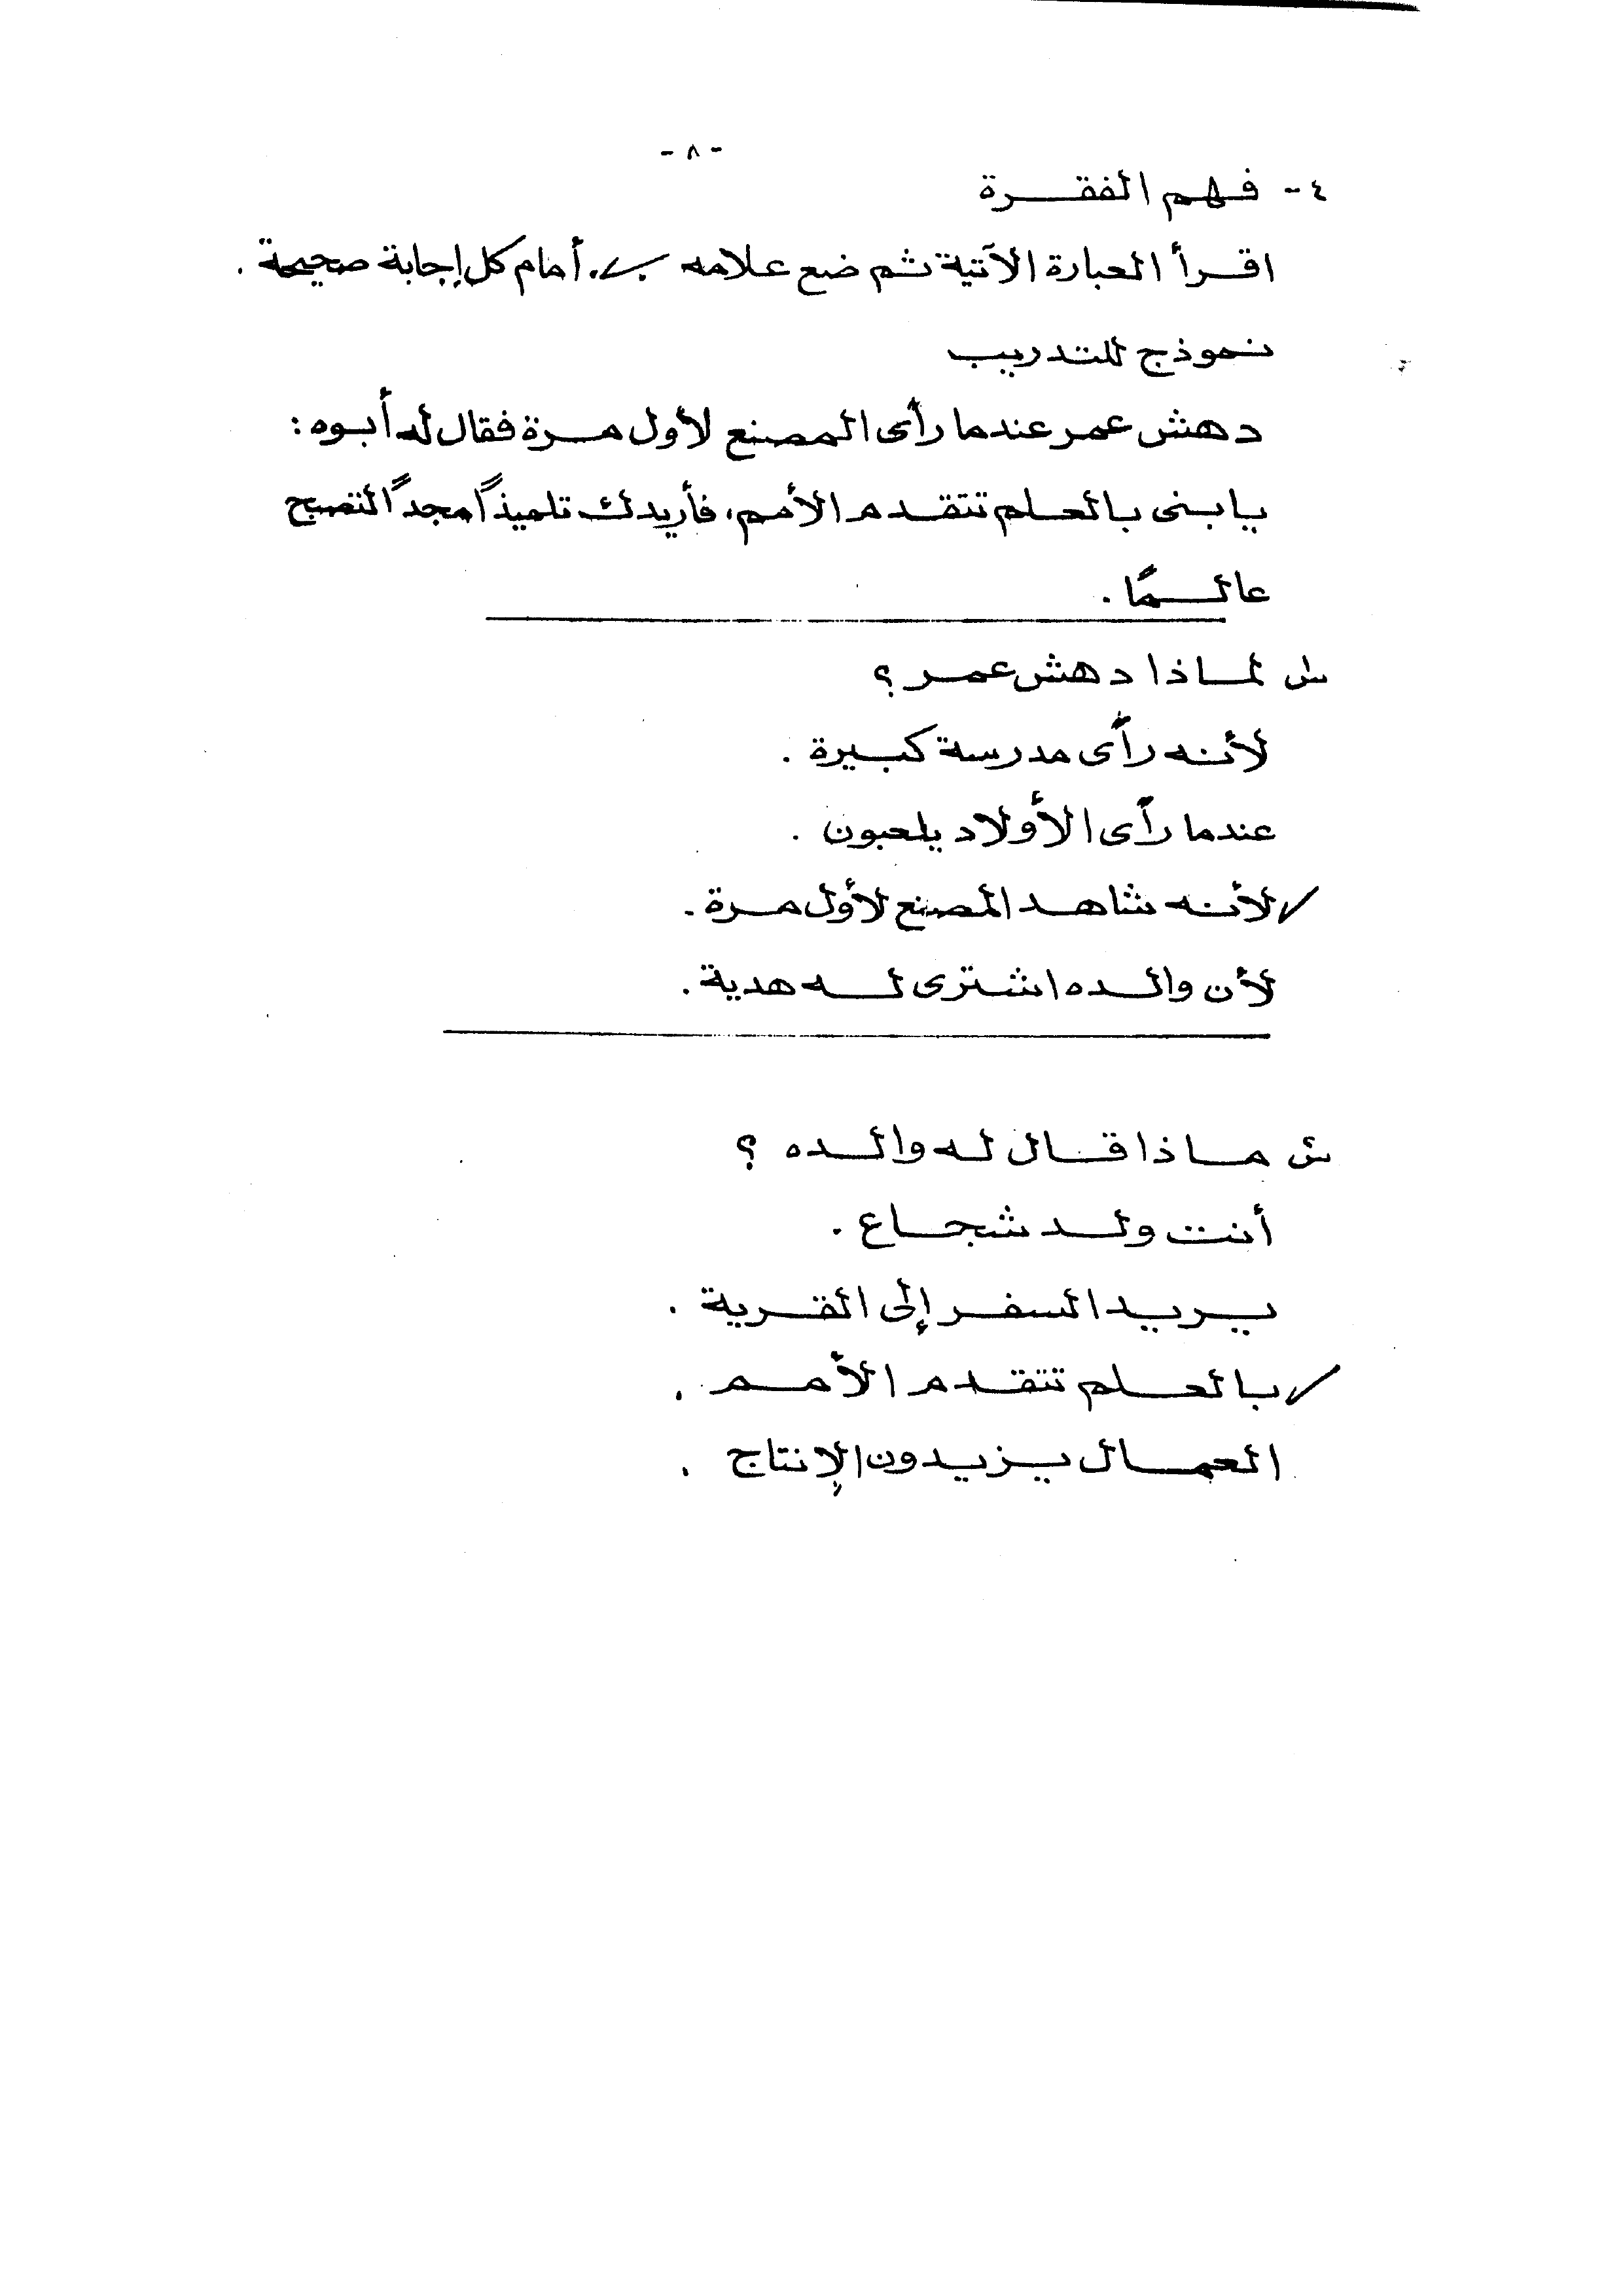 - ٨ -
٤- فهم الفقرة
اقرأ العبارة الآتية ثم ضع علامه ✓ أمام كل إجابة صحيحة .
نموذج للتدريب
دهش عمر عندما رأى المصنع لأول مرة فقال له أبوه :
يا بنى بالعلم تتقدم الأمم، فأريدك تلميذاً مجداً لتصبح
عالمًا .
س لماذا دهش عمر ؟
لأنه رأى مدرسة كبيرة .
عندما رأى الأولاد يلعبون .
✓ لأنه شاهد المصنع لأول مرة .
لأن والده اشترى له هدية .
س ماذا قال له والده ؟
أنت ولد شجاع .
يريد السفر إلى القرية .
✓ بالعلم تتقدم الأمم .
العمال يزيدون الإنتاج .